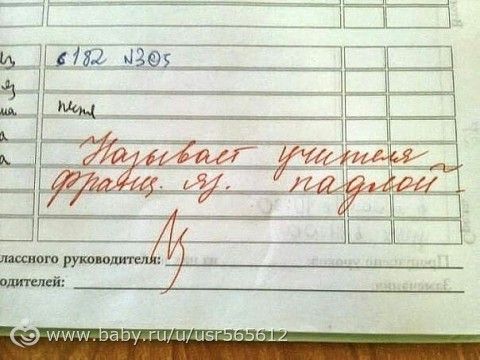 с 182 №305
яз
Называет учителя
франц. яз. падлой.
лассного руководителя:
одителей:
www.baby.ru/u/usr565612